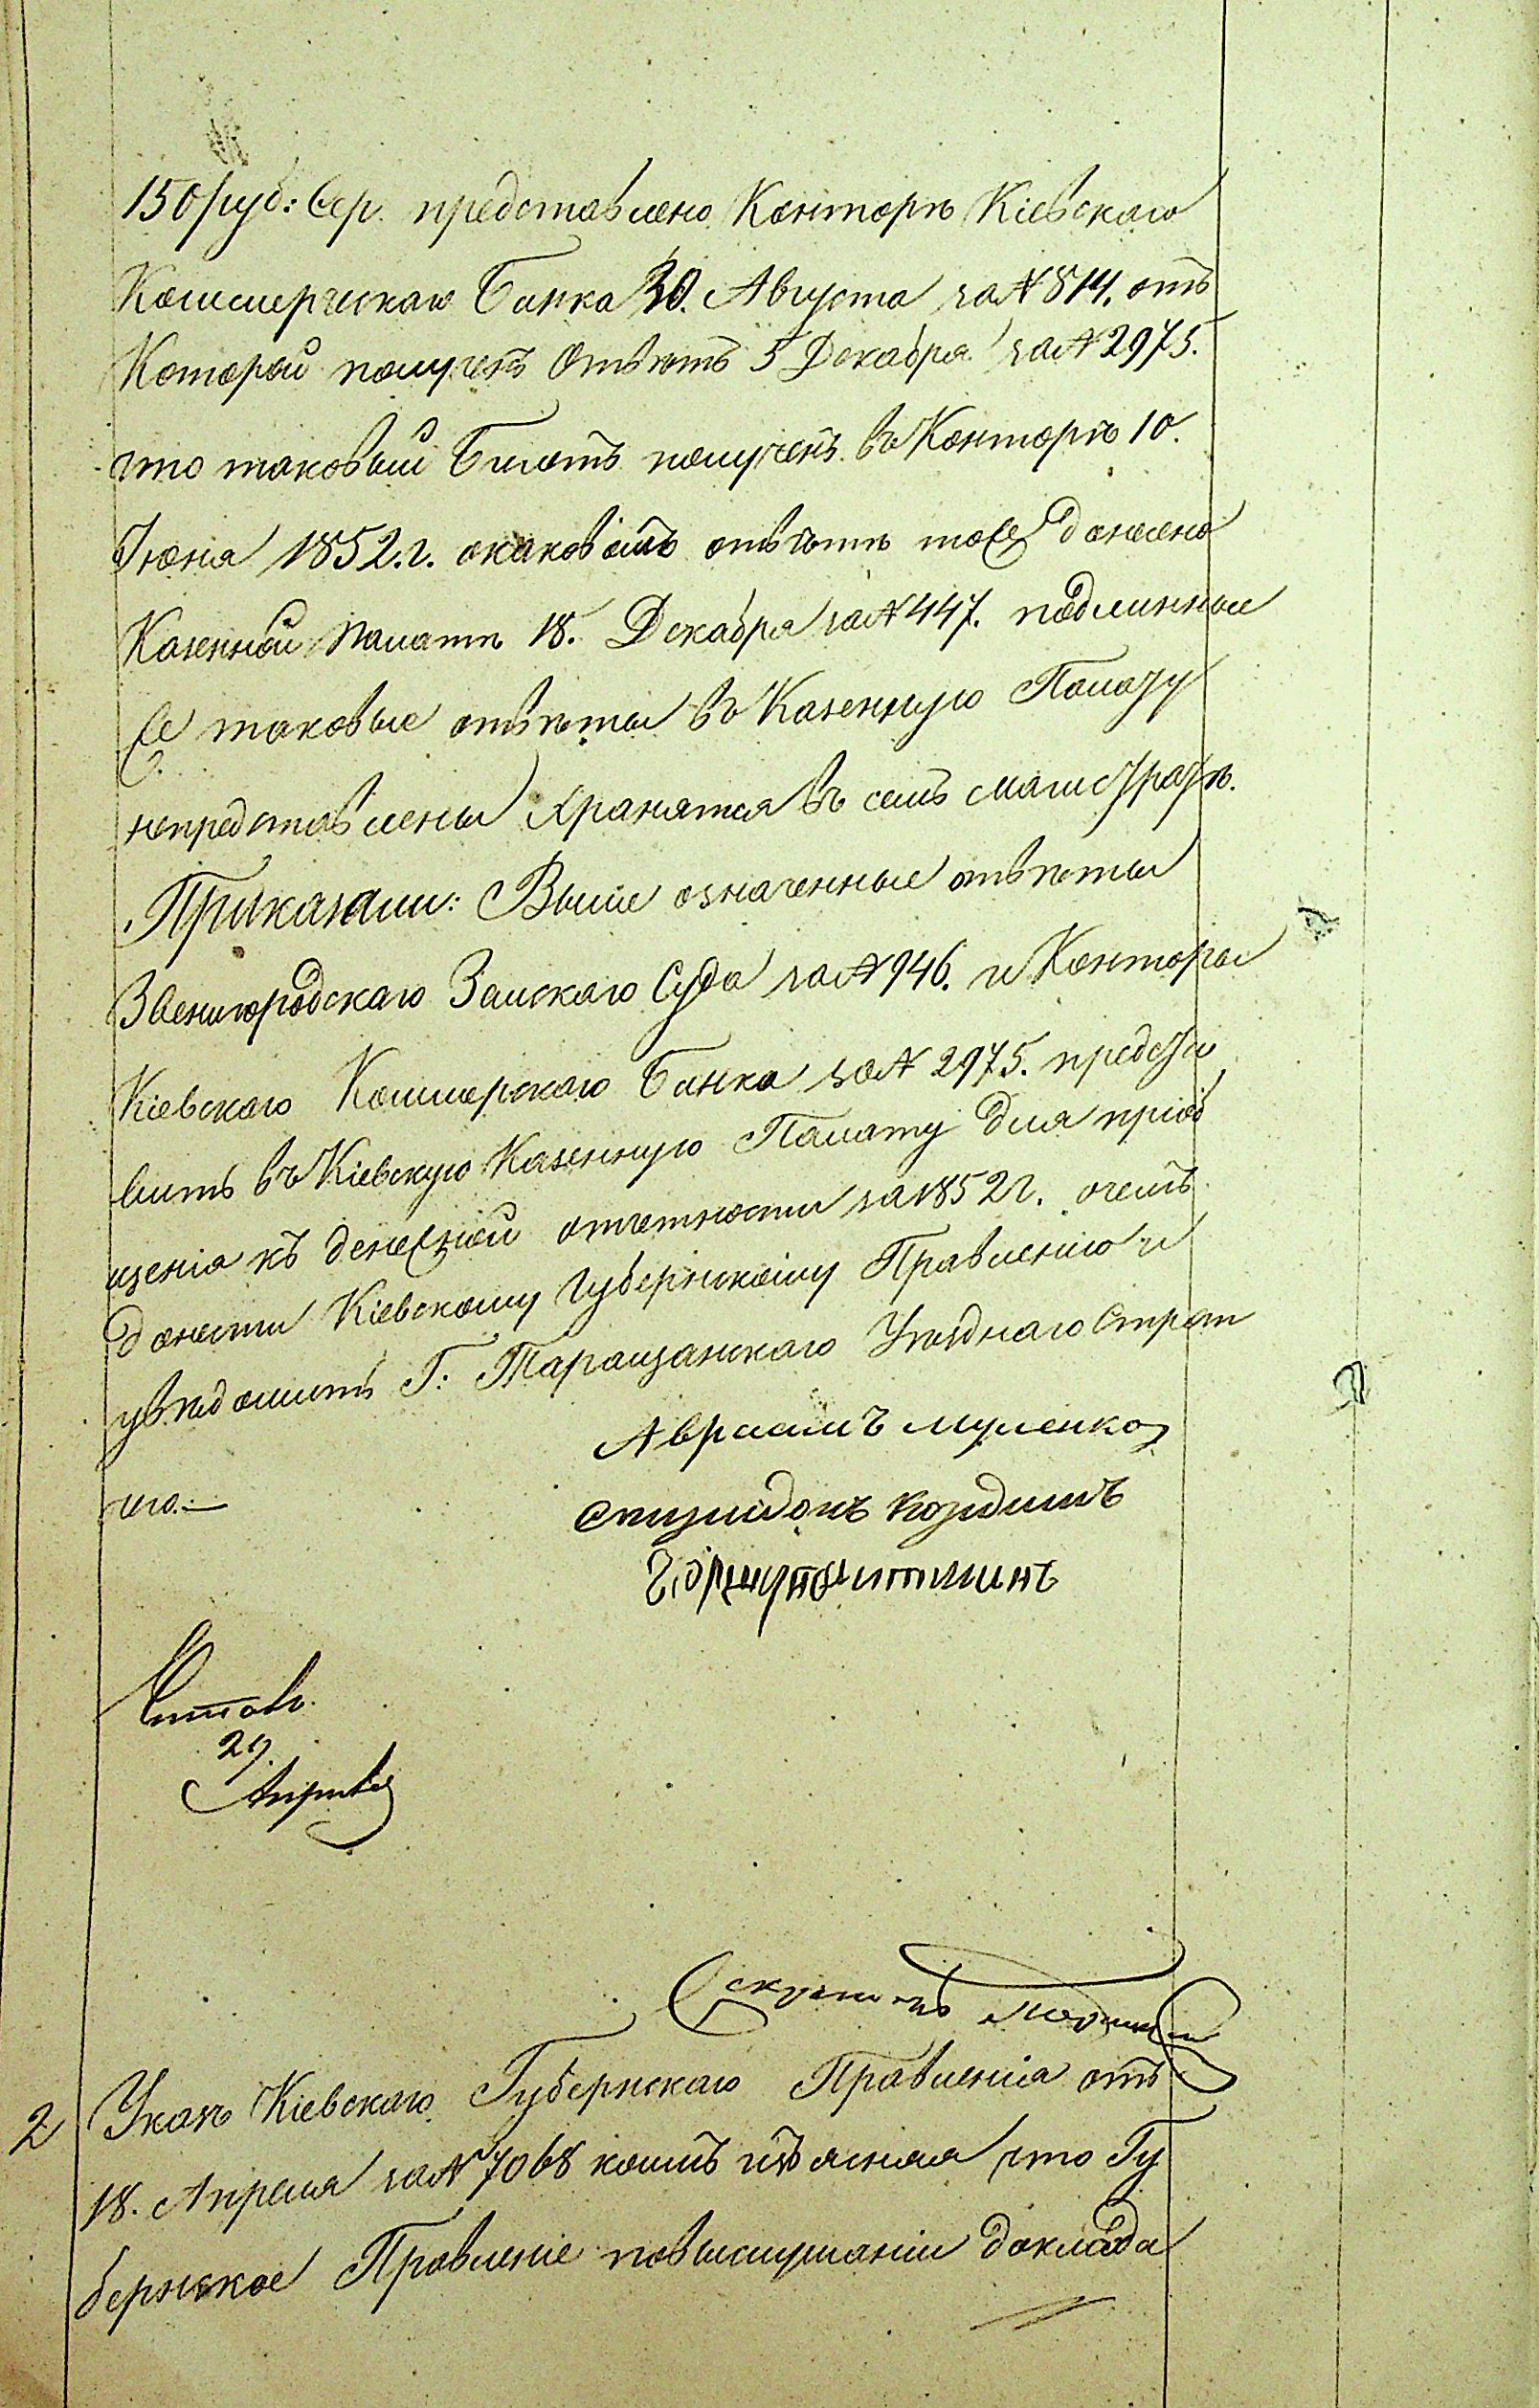 150 руб: сер. представлено Конторѣ Кіевскаго
Коммерческаго Банка 30. Августа за № 814. отъ
Которой полученъ Отвѣтъ 5 Декабря за № 2975.
что таковый билетъ полученъ въ Конторѣ 10.
Іюня 1852. г. о каковомъ отвѣтѣ тоже донесено
Казенной Палатѣ 18. Декабря за № 447. подлинные
же таковые отвѣты въ Казенную Палату
непредставлены хранятся въ семъ магистратѣ.
Приказали: Выше означенные отвѣты
Звенигородскаго Земскаго Суда за № 946. и Конторы
Кіевскаго Коммерскаго Банка за № 2975. предста
вить въ Кіевскую Казенную Палату для пріоб
щенія къ денежной отчетности за 1852 г. о чемъ
донести Кіевскому Губернскому Правленію и
увѣдомить Г: Таращанскаго Уѣзднаго Стряп
чего.—
Авраамъ Муленко
Спиридонъ
Читалъ
29
Апрѣля
Скрѣпилъ
2 Указъ Кіевскаго Губернскаго Правленія отъ
18. Апреля за № 7068 коимъ изъясняя что Гу
бернское Правленіе повыслушаніи доклада